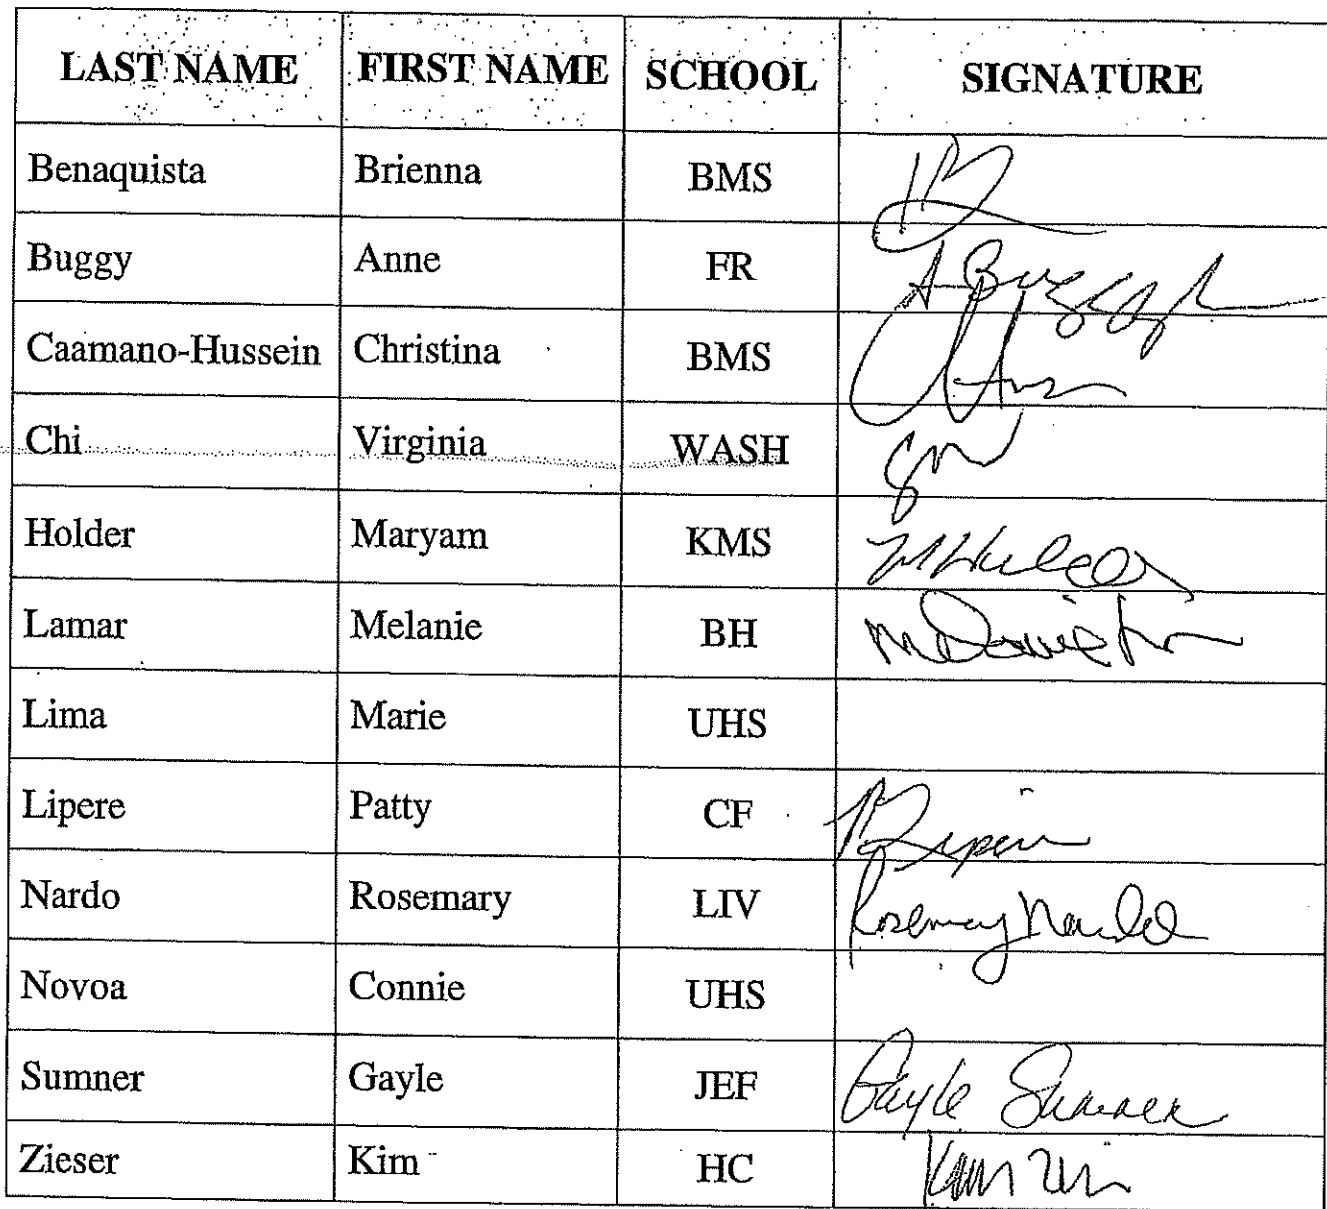 LAST NAME FIRST NAME SCHOOL SIGNATURE
Benaquista Brienna BMS
Buggy Anne FR A Buggy
Caamano-Hussein Christina BMS
Chi Virginia WASH
Holder Maryam KMS
Lamar Melanie BH Melanie
Lima Marie UHS
Lipere Patty CF
Nardo Rosemary LIV Rosemary Nardo
Novoa Connie UHS
Sumner Gayle JEF Gayle Sumner
Zieser Kim HC Kim